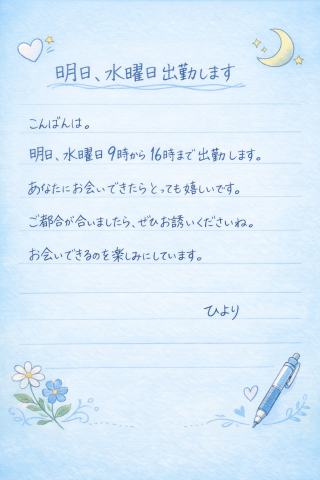 明日、水曜日出勤します
こんばんは。
明日、水曜日9時から16時まで出勤します。
あなたにお会いできたらとっても嬉しいです。
ご都合が合いましたら、ぜひお誘いくださいね。
お会いできるのを楽しみにしています。
ひより